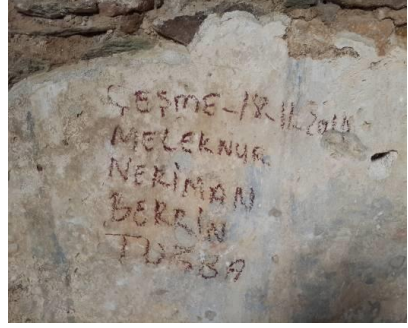 ÇEŞME-18.11.2014
MELEKNUR
NERİMAN
BERRİN
TUĞBA